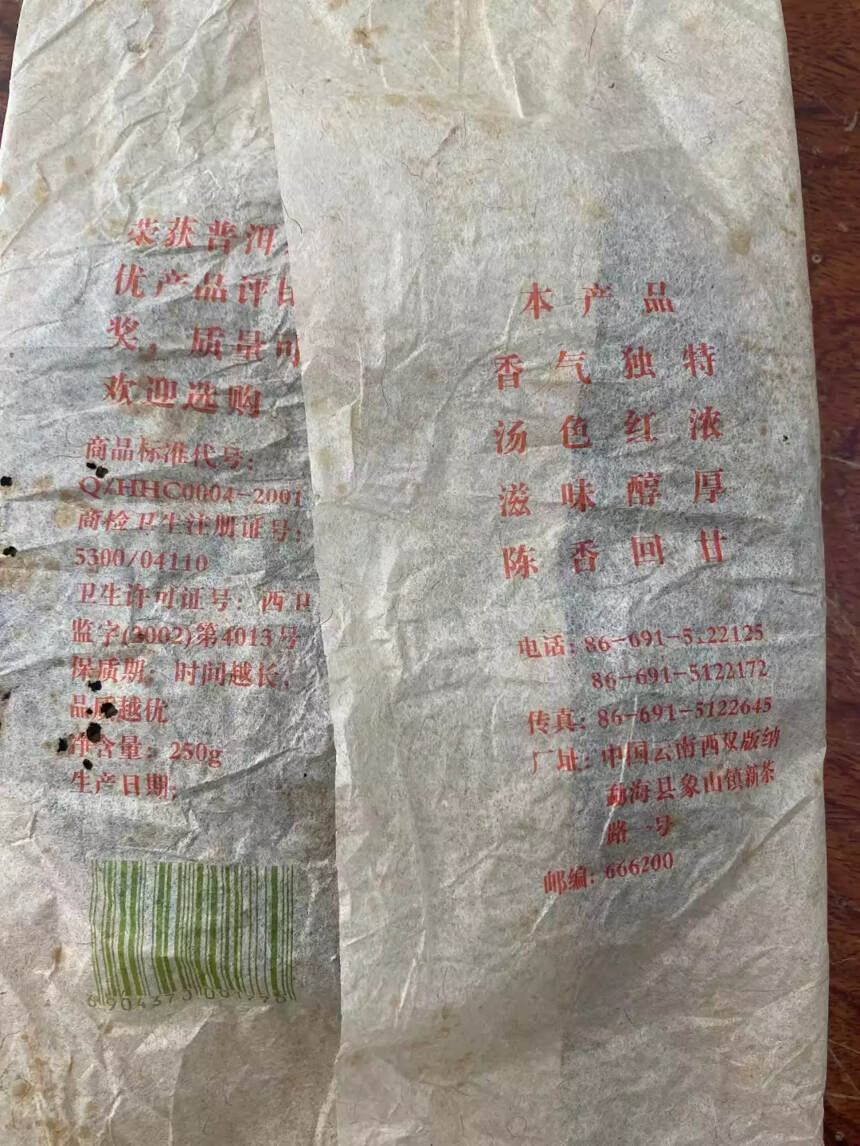 荣获普洱
优产品评
奖，质量可
欢迎选购
商品标准代号：
Q/HHC0004-2001
商检卫生注册证号：
5300/04110
卫生许可证号：西卫
监字(2002)第4013号
保质期：时间越长，
品质越优
净含量：250g
生产日期：
本产品
香气独特
汤色红浓
滋味醇厚
陈香回甘
电话：86-691-5122125
86-691-5122172
传真：86-691-5122645
厂址：中国云南西双版纳
勐海县象山镇新茶
路一号
邮编：666200